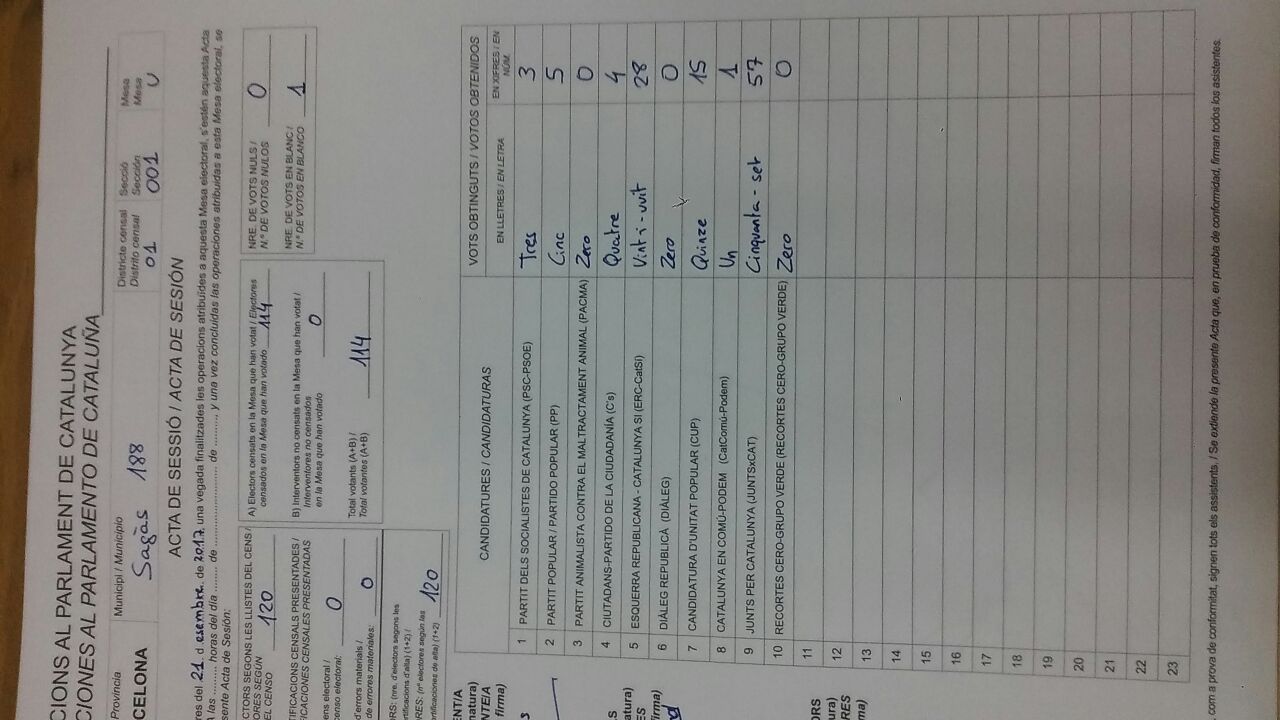 CIONS AL PARLAMENT DE CATALUNYA
CIONES AL PARLAMENTO DE CATALUÑA
Província
CELONA
Municipi / Municipio
Sagàs 188
Districte censal
Distrito censal
01
Secció
Sección
001
Mesa
Mesa
U
ACTA DE SESSIÓ / ACTA DE SESIÓN
res del 21 d esembre. de 2017 una vegada finalitzades les operacions atribuïdes a aquesta Mesa electoral, s'estén aquesta Acta
las ......... horas del día ....... de ....................... de .......... y una vez concluidas las operaciones atribuidas a esta Mesa electoral, se
sente Acta de Sesión:
CTORS SEGONS LES LLISTES DEL CENS /
ORES SEGÚN
EL CENSO 120
TIFICACIONS CENSALS PRESENTADES /
ICACIONES CENSALES PRESENTADAS
ens electoral /
enso electoral: 0
d'errors materials /
de errores materiales: 0
ORS: (nre. d'electors segons les
ntificacions d'alta) (1+2) /
RES: (nº electores según las
ntificaciones de alta) (1+2) 120
A) Electors censats en la Mesa que han votat / Electores
censados en la Mesa que han votado 114
B) Interventors no censats en la Mesa que han votat /
Interventores no censados
en la Mesa que han votado 0
Total votants (A+B) /
Total votantes (A+B) 114
NRE. DE VOTS NULS /
N.º DE VOTOS NULOS 0
NRE. DE VOTS EN BLANC /
N.º DE VOTOS EN BLANCO 1
CANDIDATURES / CANDIDATURAS
VOTS OBTINGUTS / VOTOS OBTENIDOS
EN LLETRES / EN LETRA
EN XIFRES / EN NÚM.
1 PARTIT DELS SOCIALISTES DE CATALUNYA (PSC-PSOE) Tres 3
2 PARTIT POPULAR / PARTIDO POPULAR (PP) Cinc 5
3 PARTIT ANIMALISTA CONTRA EL MALTRACTAMENT ANIMAL (PACMA) Zero 0
4 CIUTADANS-PARTIDO DE LA CIUDADANÍA (C's) Quatre 4
5 ESQUERRA REPUBLICANA - CATALUNYA SI (ERC-CatSI) Vint-i-vuit 28
6 DIÀLEG REPUBLICÀ (DIÀLEG) Zero 0
7 CANDIDATURA D'UNITAT POPULAR (CUP) Quinze 15
8 CATALUNYA EN COMÚ-PODEM (CatComú-Podem) Un 1
9 JUNTS PER CATALUNYA (JUNTSxCAT) Cinquanta-set 57
10 RECORTES CERO-GRUPO VERDE (RECORTES CERO-GRUPO VERDE) Zero 0
11
12
13
14
15
16
17
18
19
20
21
22
23
com a prova de conformitat, signen tots els assistents. / Se extiende la presente Acta que, en prueba de conformidad, firman todos los asistentes.